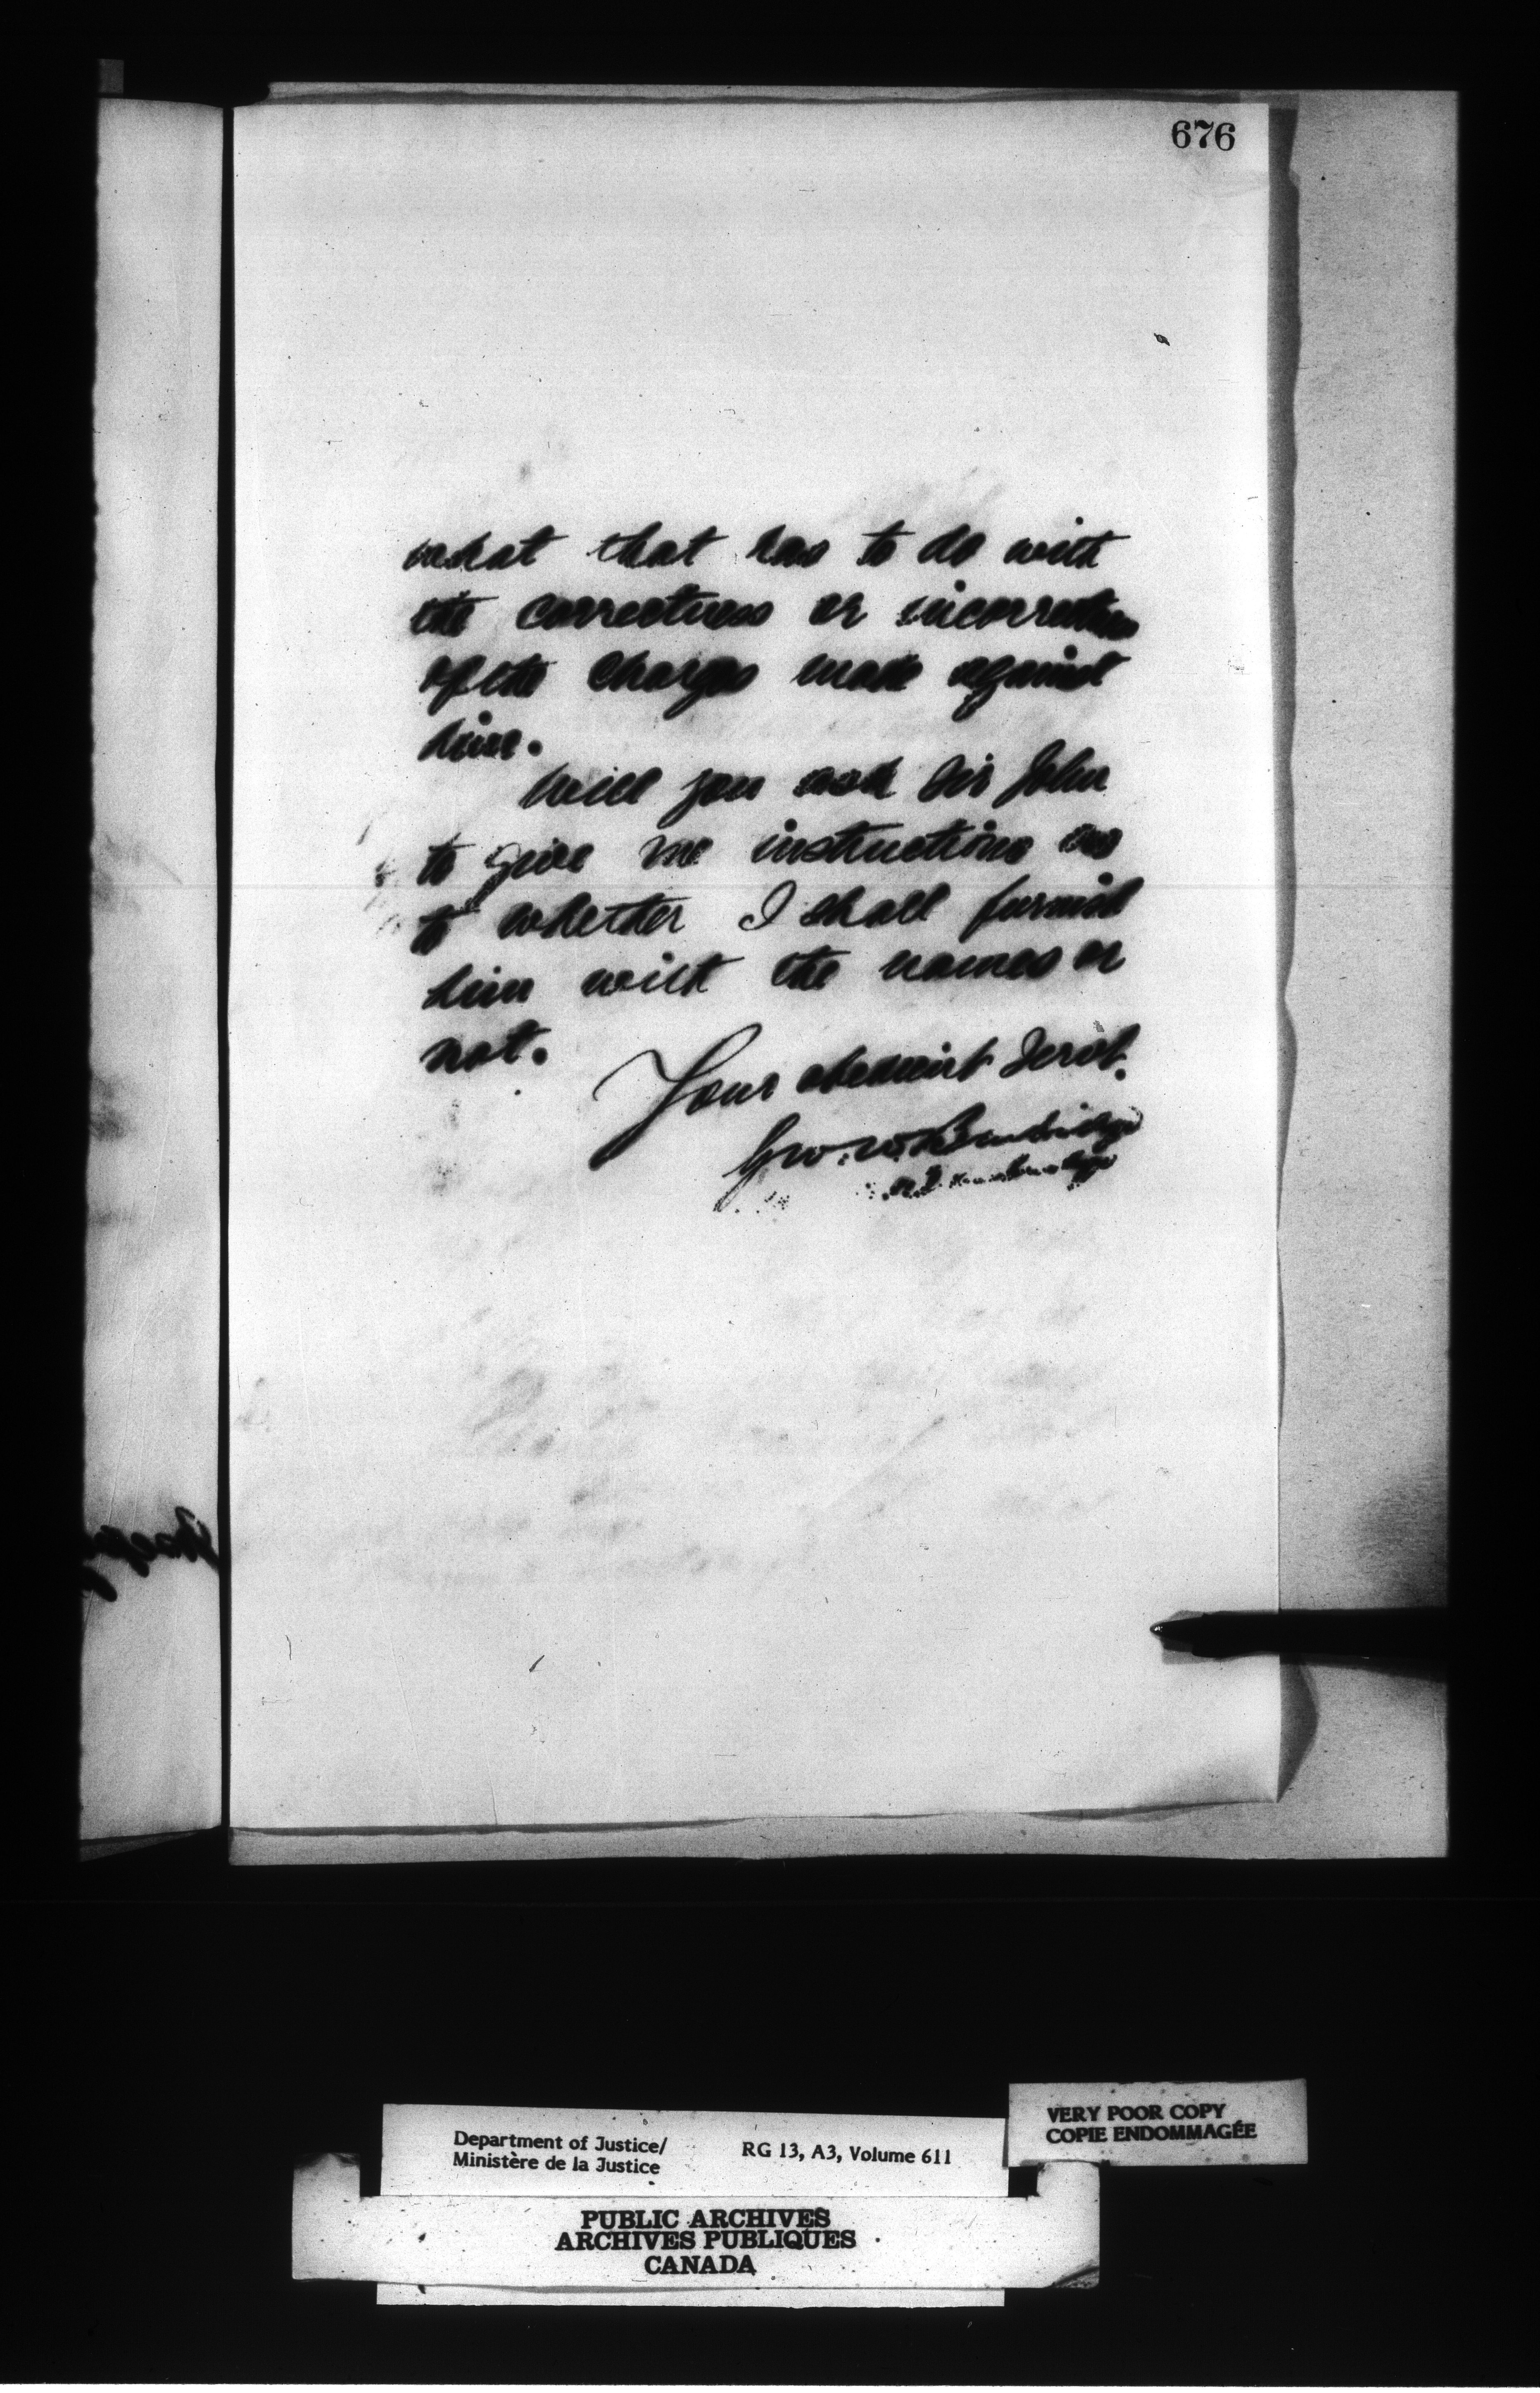 676
what that has to do with
the correctness or incorrectness
of the charges made against
him.
Will you ask Sir John
to give me instructions as
to whether I shall furnish
him with the names or
not.
Your obedient Servt.
Geo. W. Burbidge
Department of Justice/
Ministère de la Justice
RG 13, A3, Volume 611
VERY POOR COPY
COPIE ENDOMMAGÉE
PUBLIC ARCHIVES
ARCHIVES PUBLIQUES
CANADA